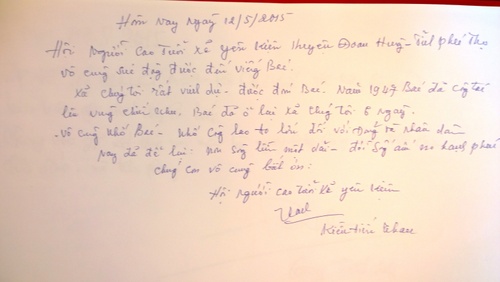 Hôm nay ngày 12/5/2015
Hội Người Cao Tuổi xã Yên Kiện huyện Đoan Hùng - Tỉnh Phú Thọ
vô cùng xúc động được đến viếng Bác.
Xã chúng tôi rất vinh dự - được đón Bác. Năm 1947 Bác đã công tác
lên vùng chiến khu. Bác đã ở lại xã chúng tôi 5 ngày.
- Vô cùng nhớ Bác - nhớ công lao to lớn đối với Đảng và nhân dân
nay đã để lại:
chúng con vô cùng biết ơn:
Hội người cao tuổi xã yên kiện